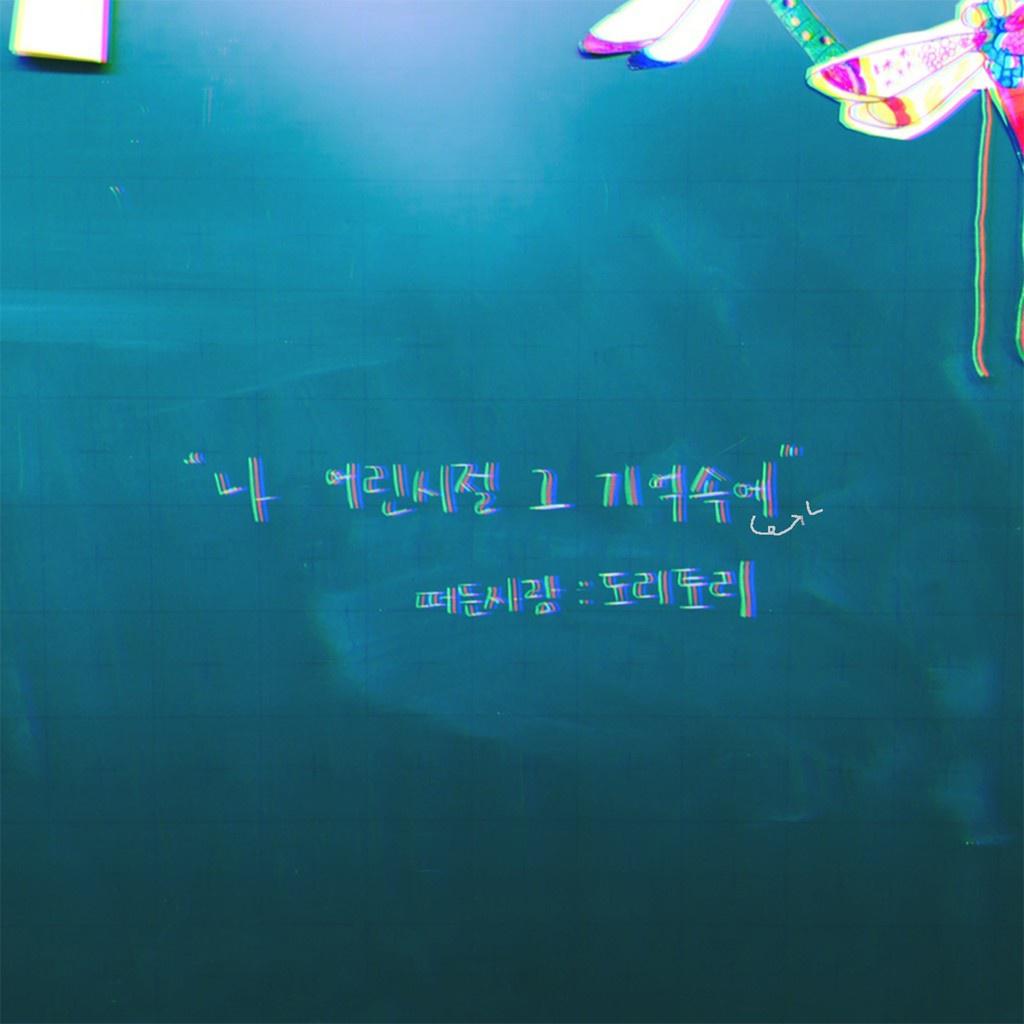 "나 어린시절 그 기억속에"
떠든사람 : 도리토리